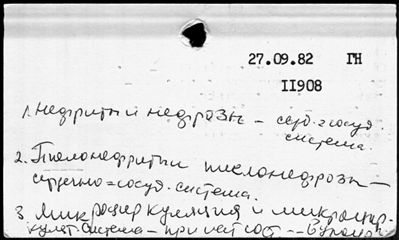 27.09.82 ГН
II908
1. Нефриты и нефрозы – серд.=сосуд.
система.
2. Пиелонефриты и пиелонефрозы –
сердечно=сосуд. система.
3. Микроциркуляция и микроцир-
кулят. система – при